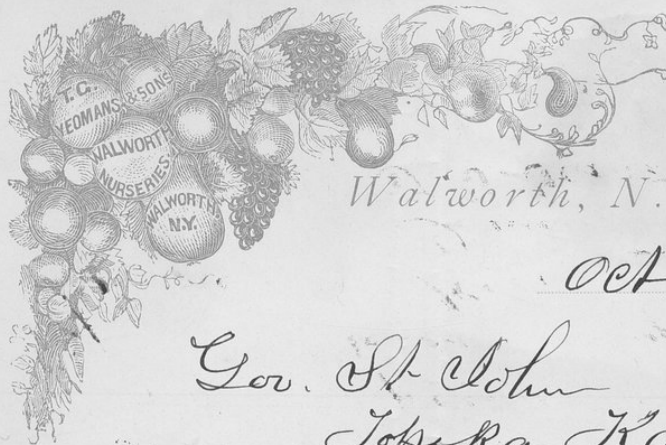 T.G.
YEOMANS & SONS
WALWORTH
NURSERIES,
WALWORTH,
N.Y.
Walworth, N.
Oct
Gov. St John
Topeka Ka